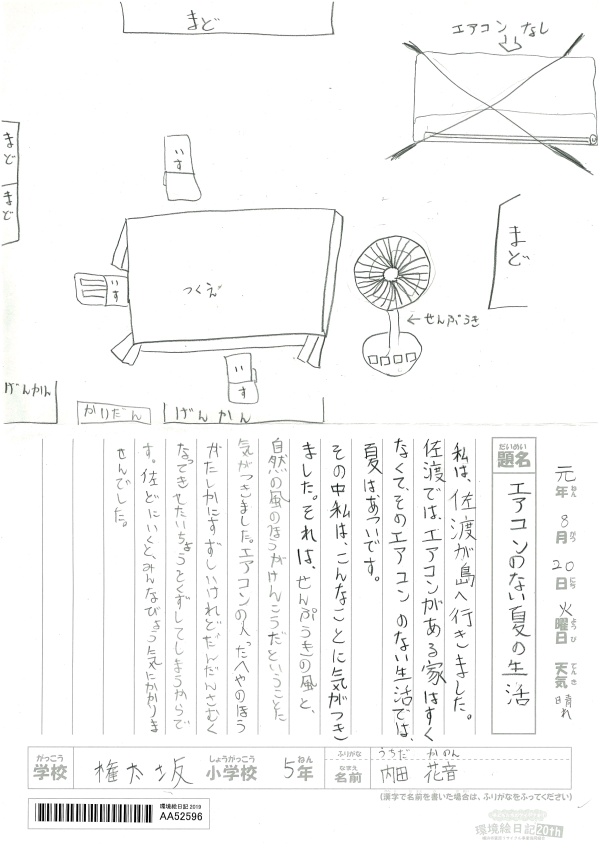 まど
エアコン なし
まど
まど
いす
まど
いす
つくえ
←せんぷうき
いす
げんかん
かいだん
げんかん
元年 8月 20日 火曜日 天気 晴れ
ねん がつ にち ようび てんき
だいめい
題名 エアコンのない夏の生活
私は、佐渡が島へ行きました。
佐渡では、エアコンがある家はすく
なくて、そのエアコンのない生活では、
夏はあついです。
その中私は、こんなことに気がつき
ました。それは、せんぷうきの風と、
自然の風のほうがけんこうだということに
気がつきました。エアコンの入ったへやのほう
がたしかにすずしいけれどだんだんさむく
なってきせたいちょうとくずしてしまうからで
す。佐どにいくと、みんなびょう気にかかりま
せんでした。
がっこう しょうがっこう ねん
学校 権太坂 小学校 5年
ふりがな うちだ かのん
なまえ
名前 内田 花音
(漢字で名前を書いた場合は、ふりがなをふってください)
環境絵日記 2019
AA52596
環境絵日記20th